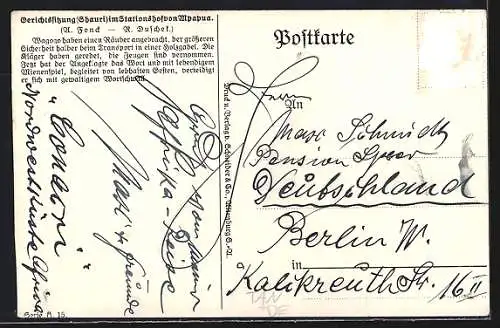 Gerichtssitzung (Schauri) im Stationshof von Mpapua.
(A. Fonck — R. Duschek.)
Wagogo haben einen Räuber angebracht, der größeren
Sicherheit halber beim Transport in einer Holzgabel. Die
Kläger haben geredet, die Zeugen sind vernommen.
Jetzt hat der Angeklagte das Wort und mit lebendigem
Mienenspiel, begleitet von lebhaften Gesten, verteidigt
er sich mit gewaltigem Wortschwall.
Afrika-Reise
Max & Freunde
Nordwestküste Afrika
Serie A. 15.
Druck u. Verlag v. Schneider & Co., Altenburg S.-A.
Postkarte
Herrn
An
Max Schmidt
Pension
Deutschland
Berlin W.
in
Kalkreuth Str. 16 II